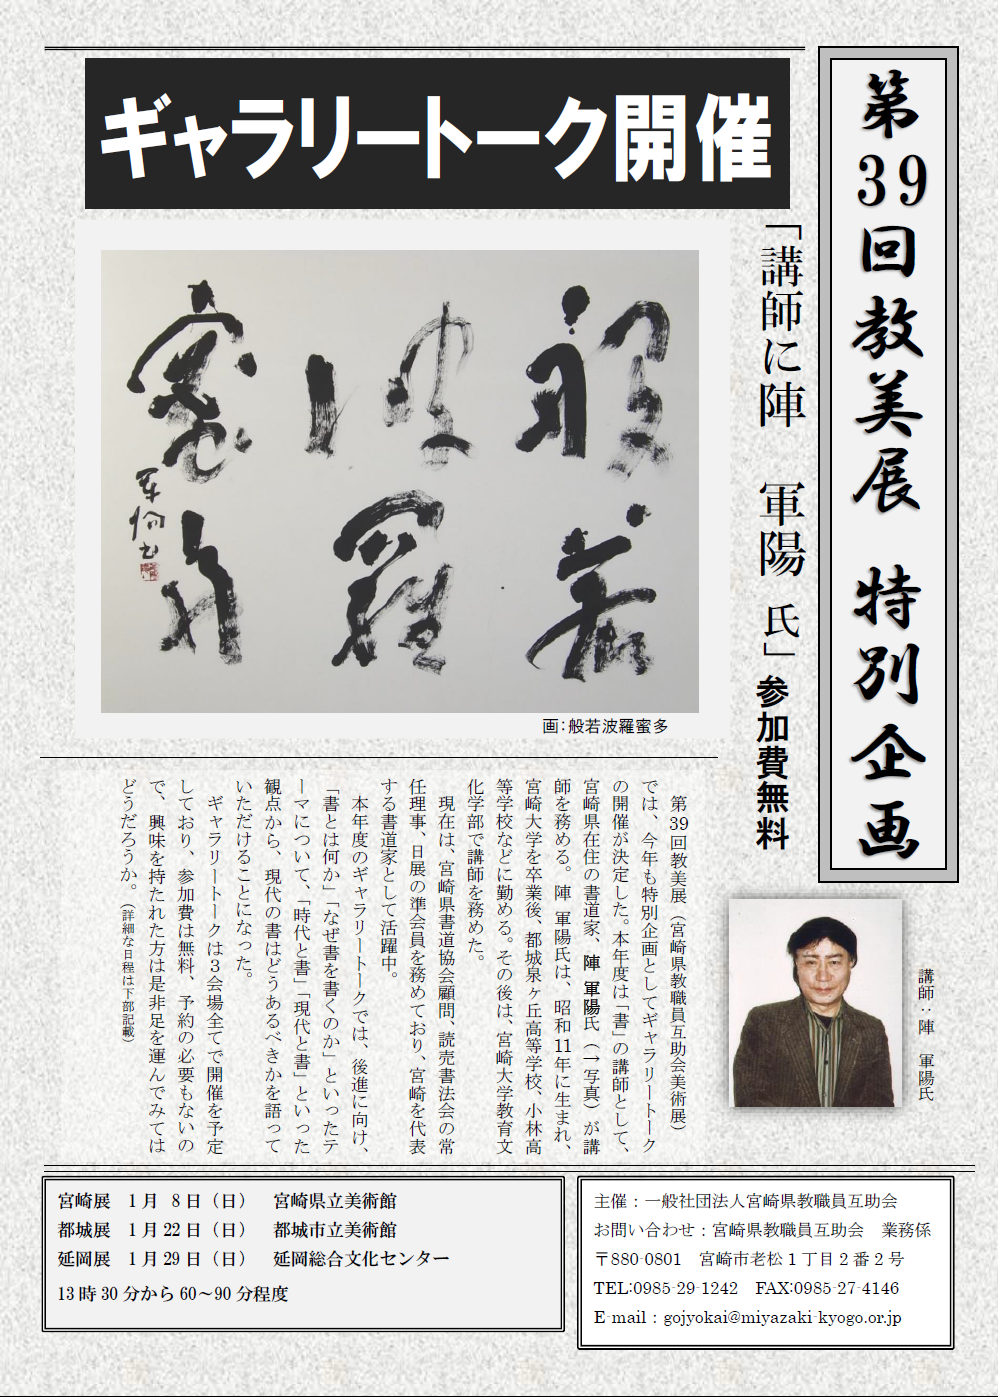 第39回教美展　特別企画
ギャラリートーク開催
「講師に陣　軍陽 氏」参加費無料
画：般若波羅蜜多
第39回教美展（宮崎県教職員互助会美術展）
では、今年も特別企画としてギャラリートーク
の開催が決定した。本年度は「書」の講師として、
宮崎県在住の書道家、陣 軍陽氏（→写真）が講
師を務める。陣 軍陽氏は、昭和11年に生まれ、
宮崎大学を卒業後、都城泉ヶ丘高等学校、小林高
等学校などに勤める。その後は、宮崎大学教育文
化学部で講師を務めた。
現在は、宮崎県書道協会顧問、読売書法会の常
任理事、日展の準会員を務めており、宮崎を代表
する書道家として活躍中。
本年度のギャラリートークでは、後進に向け、
「書とは何か」「なぜ書を書くのか」といったテ
ーマについて、「時代と書」「現代と書」といった
観点から、現代の書はどうあるべきかを語って
いただけることになった。
ギャラリートークは３会場全てで開催を予定
しており、参加費は無料、予約の必要もないの
で、興味を持たれた方は是非足を運んでみては
どうだろうか。（詳細な日程は下部記載）
講師：陣　軍陽氏
宮崎展　1月　8日（日）　宮崎県立美術館
都城展　1月 22日（日）　都城市立美術館
延岡展　1月 29日（日）　延岡総合文化センター
13時30分から60～90分程度
主催：一般社団法人宮崎県教職員互助会
お問い合わせ：宮崎県教職員互助会　業務係
〒880-0801　宮崎市老松１丁目２番２号
TEL:0985-29-1242　FAX:0985-27-4146
E-mail：gojyokai@miyazaki-kyogo.or.jp